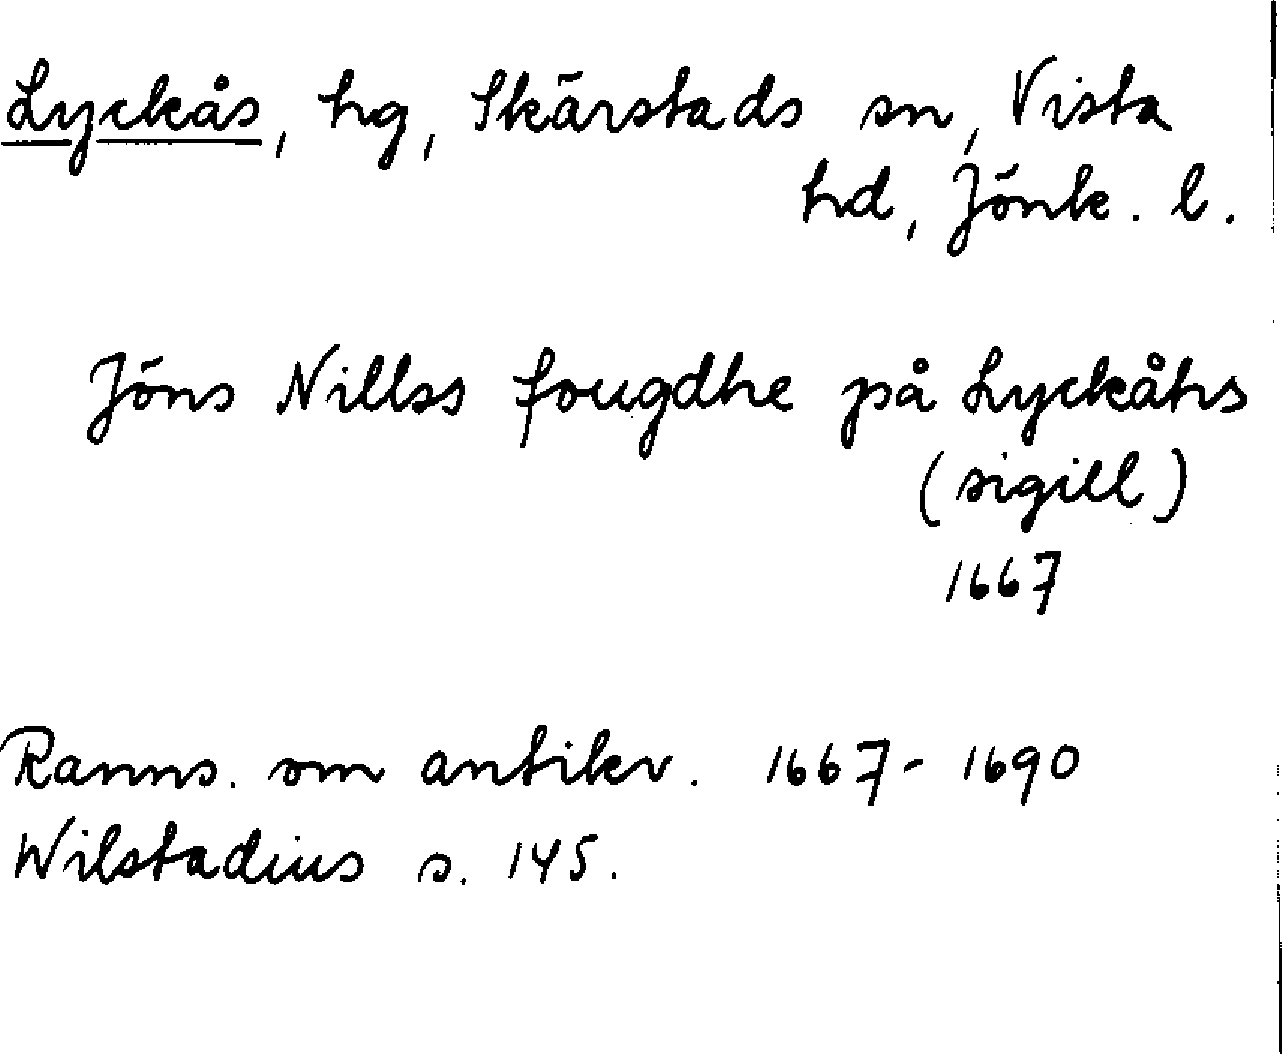 Lyckås, hg, Skärstads sn, Vista
hd, Jönk. l.
Jöns Nillss fougdhe på Lyckåhs
(sigill)
1667
Ranns. om antikv. 1667-1690
Wilstadius s. 145.